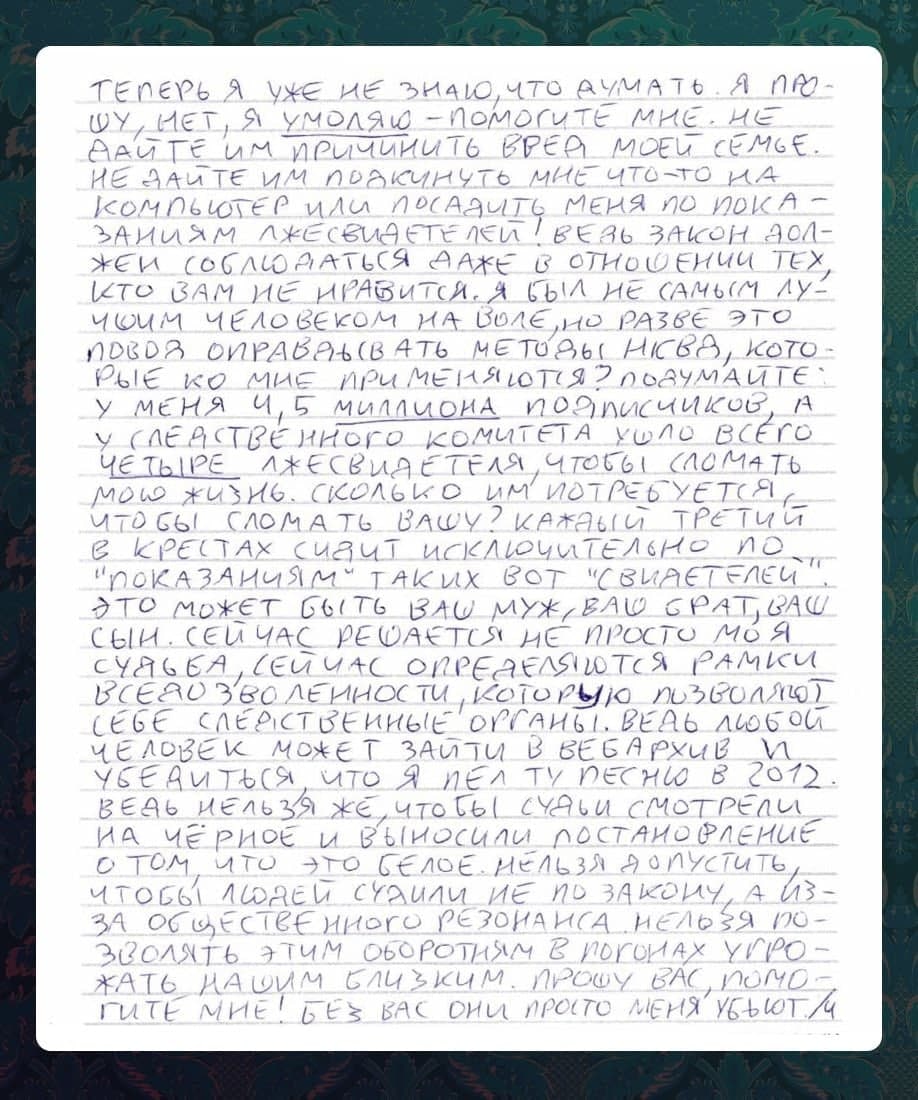 ТЕПЕРЬ Я УЖЕ НЕ ЗНАЮ, ЧТО ДУМАТЬ. Я ПРО-
ШУ, НЕТ, Я УМОЛЯЮ – ПОМОГИТЕ МНЕ. НЕ
ДАЙТЕ ИМ ПРИЧИНИТЬ ВРЕД МОЕЙ СЕМЬЕ.
НЕ ДАЙТЕ ИМ ПОДКИНУТЬ МНЕ ЧТО-ТО НА
КОМПЬЮТЕР ИЛИ ПОСАДИТЬ МЕНЯ ПО ПОКА-
ЗАНИЯМ ЛЖЕСВИДЕТЕЛЕЙ! ВЕДЬ ЗАКОН ДОЛ-
ЖЕН СОБЛЮДАТЬСЯ ДАЖЕ В ОТНОШЕНИИ ТЕХ,
КТО ВАМ НЕ НРАВИТСЯ. Я БЫЛ НЕ САМЫМ ЛУ-
ЧШИМ ЧЕЛОВЕКОМ НА ВОЛЕ, НО РАЗВЕ ЭТО
ПОВОД ОПРАВДЫВАТЬ МЕТОДЫ НКВД, КОТО-
РЫЕ КО МНЕ ПРИМЕНЯЮТСЯ? ПОДУМАЙТЕ:
У МЕНЯ 4,5 МИЛЛИОНА ПОДПИСЧИКОВ, А
У СЛЕДСТВЕННОГО КОМИТЕТА УШЛО ВСЕГО
ЧЕТЫРЕ ЛЖЕСВИДЕТЕЛЯ, ЧТОБЫ СЛОМАТЬ
МОЮ ЖИЗНЬ. СКОЛЬКО ИМ ПОТРЕБУЕТСЯ,
ЧТОБЫ СЛОМАТЬ ВАШУ? КАЖДЫЙ ТРЕТИЙ
В КРЕСТАХ СИДИТ ИСКЛЮЧИТЕЛЬНО ПО
"ПОКАЗАНИЯМ" ТАКИХ ВОТ "СВИДЕТЕЛЕЙ".
ЭТО МОЖЕТ БЫТЬ ВАШ МУЖ, ВАШ БРАТ, ВАШ
СЫН. СЕЙЧАС РЕШАЕТСЯ НЕ ПРОСТО МОЯ
СУДЬБА, СЕЙЧАС ОПРЕДЕЛЯЮТСЯ РАМКИ
ВСЕДОЗВОЛЕННОСТИ, КОТОРУЮ ПОЗВОЛЯЮТ
СЕБЕ СЛЕДСТВЕННЫЕ ОРГАНЫ. ВЕДЬ ЛЮБОЙ
ЧЕЛОВЕК МОЖЕТ ЗАЙТИ В ВЕБАРХИВ И
УБЕДИТЬСЯ, ЧТО Я ПЕЛ ТУ ПЕСНЮ В 2012.
ВЕДЬ НЕЛЬЗЯ ЖЕ, ЧТОБЫ СУДЬИ СМОТРЕЛИ
НА ЧЁРНОЕ И ВЫНОСИЛИ ПОСТАНОВЛЕНИЕ
О ТОМ, ЧТО ЭТО БЕЛОЕ. НЕЛЬЗЯ ДОПУСТИТЬ,
ЧТОБЫ ЛЮДЕЙ СУДИЛИ НЕ ПО ЗАКОНУ, А ИЗ-
ЗА ОБЩЕСТВЕННОГО РЕЗОНАНСА. НЕЛЬЗЯ ПО-
ЗВОЛЯТЬ ЭТИМ ОБОРОТНЯМ В ПОГОНАХ УГРО-
ЖАТЬ НАШИМ БЛИЗКИМ. ПРОШУ ВАС, ПОМО-
ГИТЕ МНЕ! БЕЗ ВАС ОНИ ПРОСТО МЕНЯ УБЬЮТ.